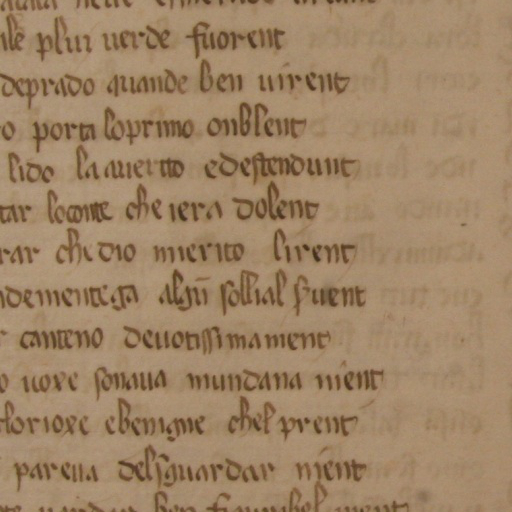 ile plui uerde fuorent
deprado quande ben uirent
o porta loprimo onblent
lido la auerto edestendunt
tar loconte che iera dolent
rar che dio merito lirent
ndementega algun sollial
r canteno deuotissimament
o uoxe sonaua mundana nient
glorioxe e benigne chel prent
pareua delsguardar nient